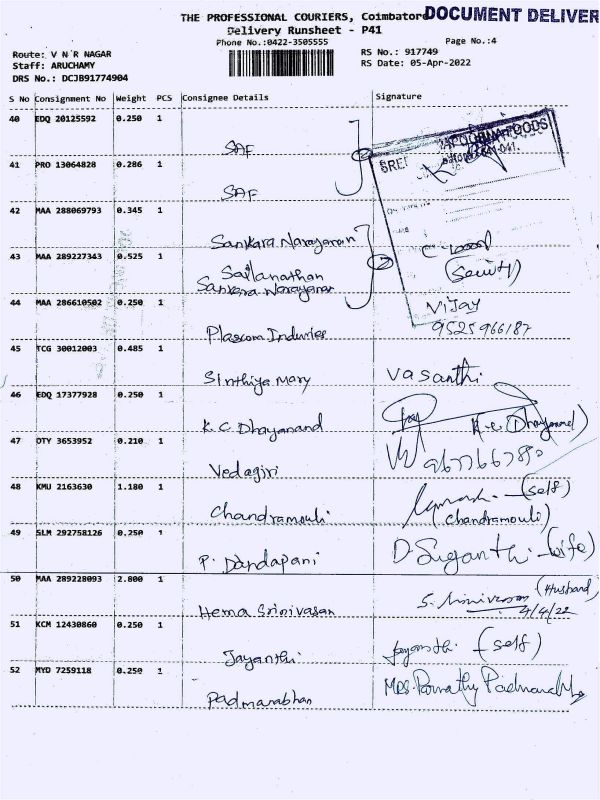 THE PROFESSIONAL COURIERS, Coimbatore
DOCUMENT DELIVER
Delivery Runsheet - P41
Phone No.:0422-3505555
Page No.:4
Route: V N R NAGAR
RS No.: 917749
Staff: ARUCHAMY
RS Date: 05-Apr-2022
DRS No.: DCJB91774904
S No Consignment No Weight PCS Consignee Details Signature
40 EDQ 20125592 0.250 1
SAF
41 PRO 13064828 0.286 1
SAF
42 MAA 288069793 0.345 1
Sankara Narayanan
43 MAA 289227343 0.525 1
Sailanathan
Sankara Narayanan
(Security)
44 MAA 286610502 0.250 1
Vijay
9525966187
Plascom Industries
45 TCG 30012003 0.485 1
Sinthiya Mary Vasanthi
46 EDQ 17377928 0.250 1
K.C Dhayanand K.C Dhayanand)
47 OTY 3653952 0.210 1
Vedagiri 9677667890
48 KMU 2163630 1.180 1
(self)
Chandramouli (Chandramouli)
49 SLM 292758126 0.250 1
P. Dandapani D. Suganthi - (wife)
50 MAA 289228093 2.800 1
(Husband)
Hema Srinivasan S. Srinivasan
4/4/22
51 KCM 12430860 0.250 1
Jayanthi Jayanthi (self)
52 MYD 7259118 0.250 1
Padmanabhan Mrs. Parvathy